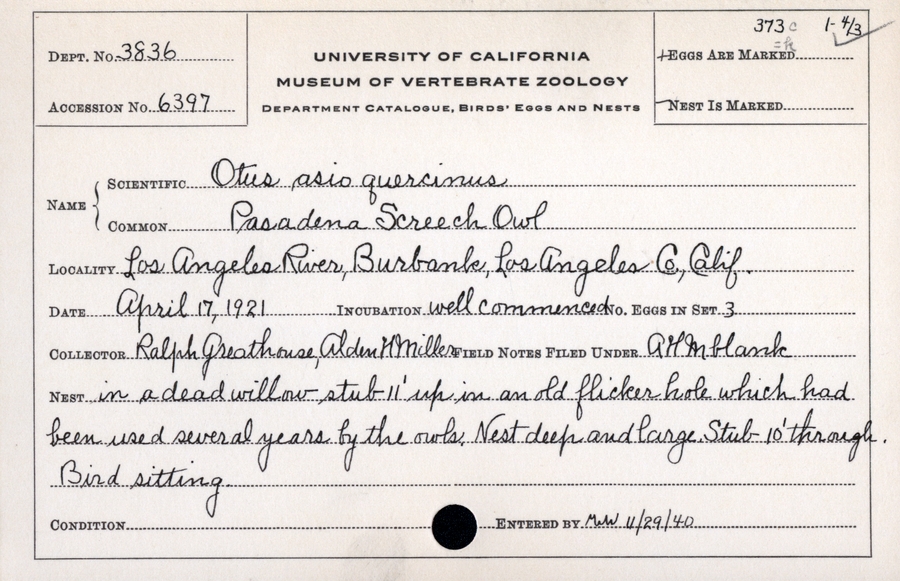 373c 1-4/3
=k
DEPT. NO. 3836
UNIVERSITY OF CALIFORNIA
EGGS ARE MARKED
MUSEUM OF VERTEBRATE ZOOLOGY
ACCESSION NO. 6397
DEPARTMENT CATALOGUE, BIRDS' EGGS AND NESTS
NEST IS MARKED
NAME
SCIENTIFIC Otus asio quercinus
COMMON Pasadena Screech Owl
LOCALITY Los Angeles River, Burbank, Los Angeles Co., Calif.
DATE April 17, 1921 INCUBATION well commenced NO. EGGS IN SET 3
COLLECTOR Ralph Greathouse, Alden H Miller FIELD NOTES FILED UNDER AHM blank
NEST in a dead willow stub 11' up in an old flicker hole which had
been used several years by the owls. Nest deep and large. Stub 10" through.
Bird sitting.
CONDITION ENTERED BY 11/29/40